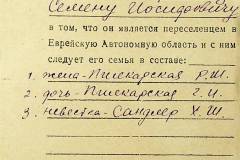 Семену Иосифовичу
в том, что он является переселенцем в
Еврейскую Автономную область и с ним
следует его семья в составе:
1. жена - Пискарская Р.Ш.
2. дочь - Пискарская Г.И.
3. невестка - Сандлер Х.Ш.